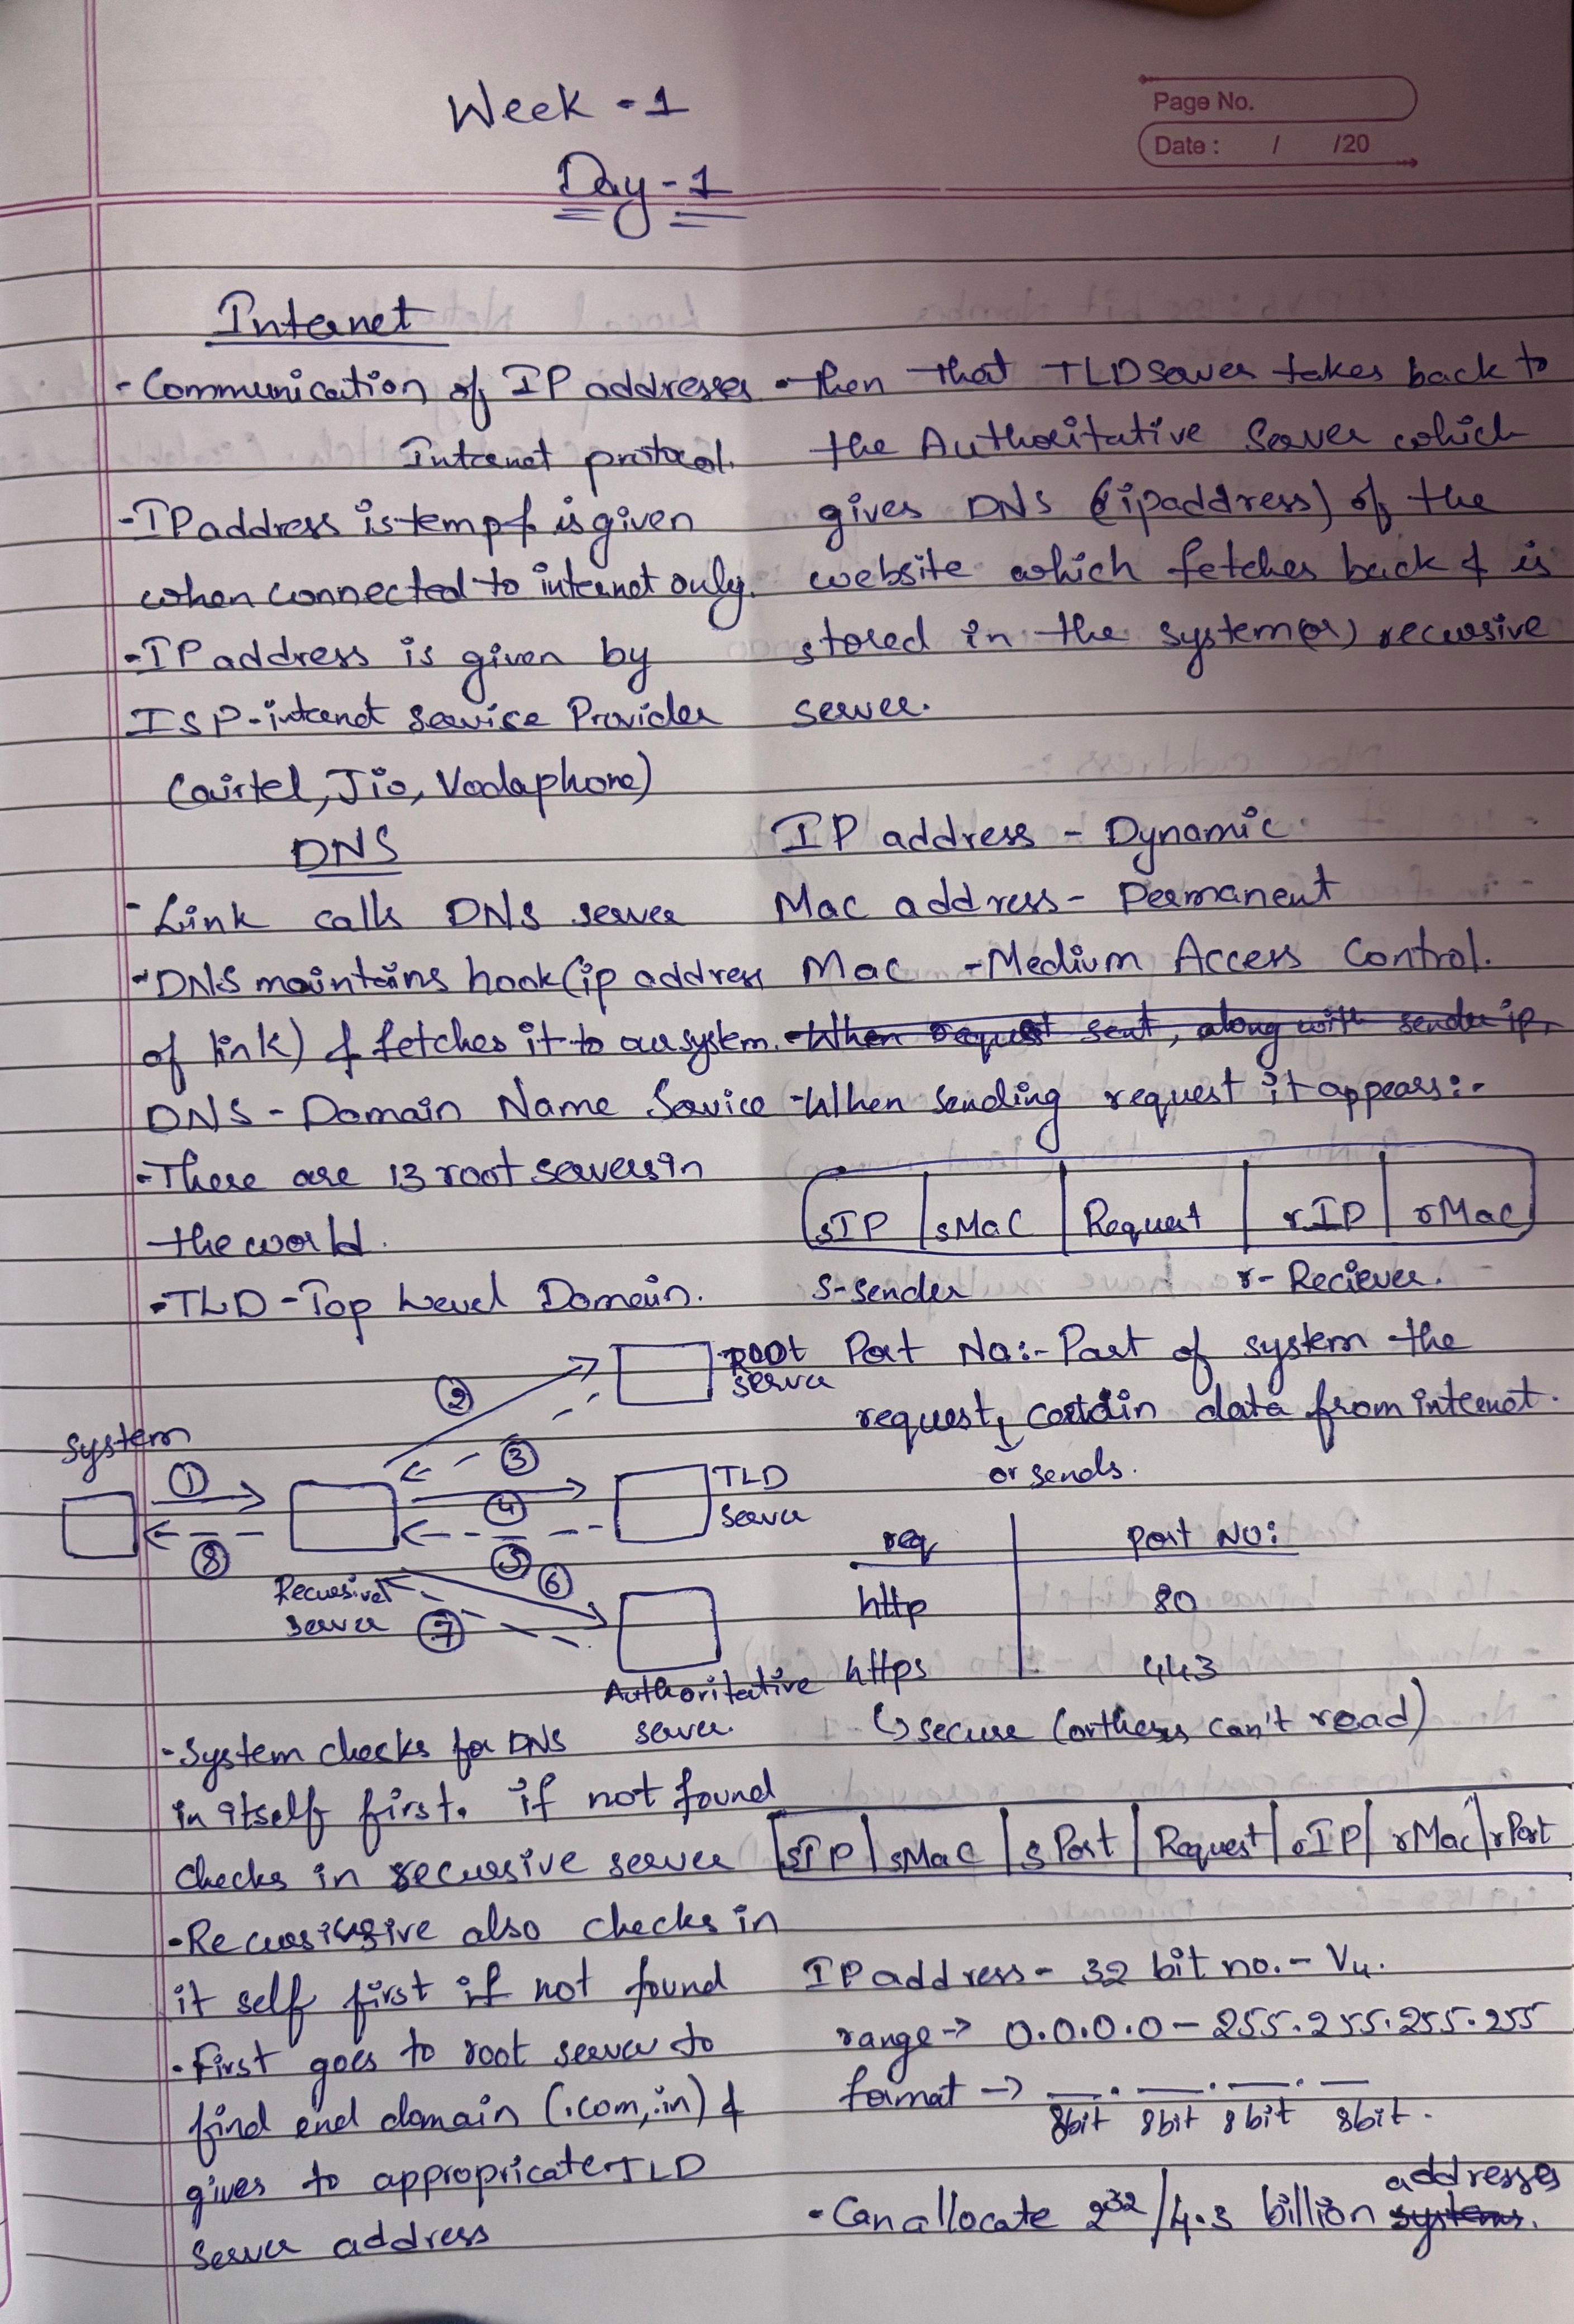 Page No.
Date : / /20
Week - 1
Day - 1
Internet
- Communication of IP addresses
Internet protocol.
- IP address is temp & is given
when connected to internet only.
- IP address is given by
ISP - internet service Provider
(airtel, Jio, Vodaphone)
DNS
- Link calls DNS server
- DNS maintains hook (ip address
of link) & fetches it to our system.
DNS - Domain Name Service
- There are 13 root servers in
the world.
- TLD - Top Level Domain.
System
①
⑧
Recursivel
server
②
③
root
server
④
⑤
TLD
server
⑥
⑦
Authoritative
server.
- System checks for DNS
in itself first. if not found
checks in recursive server
- Recursive also checks in
it self first if not found
- First goes to root server to
find end domain (.com, .in) &
gives to appropricate TLD
server address
- then that TLD server takes back to
the Authoritative Server which
gives DNS (ipaddress) of the
website which fetches back & is
stored in the system (or) recursive
server.
IP address - Dynamic.
Mac address - Permanent
Mac - Medium Access Control.
- When request sent, along with sender ip,
- When sending request it appears :-
sIP | sMac | Request | rIP | rMac
s - sender r - Reciever.
Port No :- Part of system the
request, contain data from internet.
or sends.
req | port NO:
http | 80
https | 443
↳ secure (orthers can't read)
sIP | sMac | sPort | Request | rIP | rMac | rPort
IP address - 32 bit no. - V4.
range → 0.0.0.0 - 255.255.255.255
format → __ . __ . __ . __
8bit 8bit 8bit 8bit.
- Can allocate 2³²/4.3 billion systems. addresses